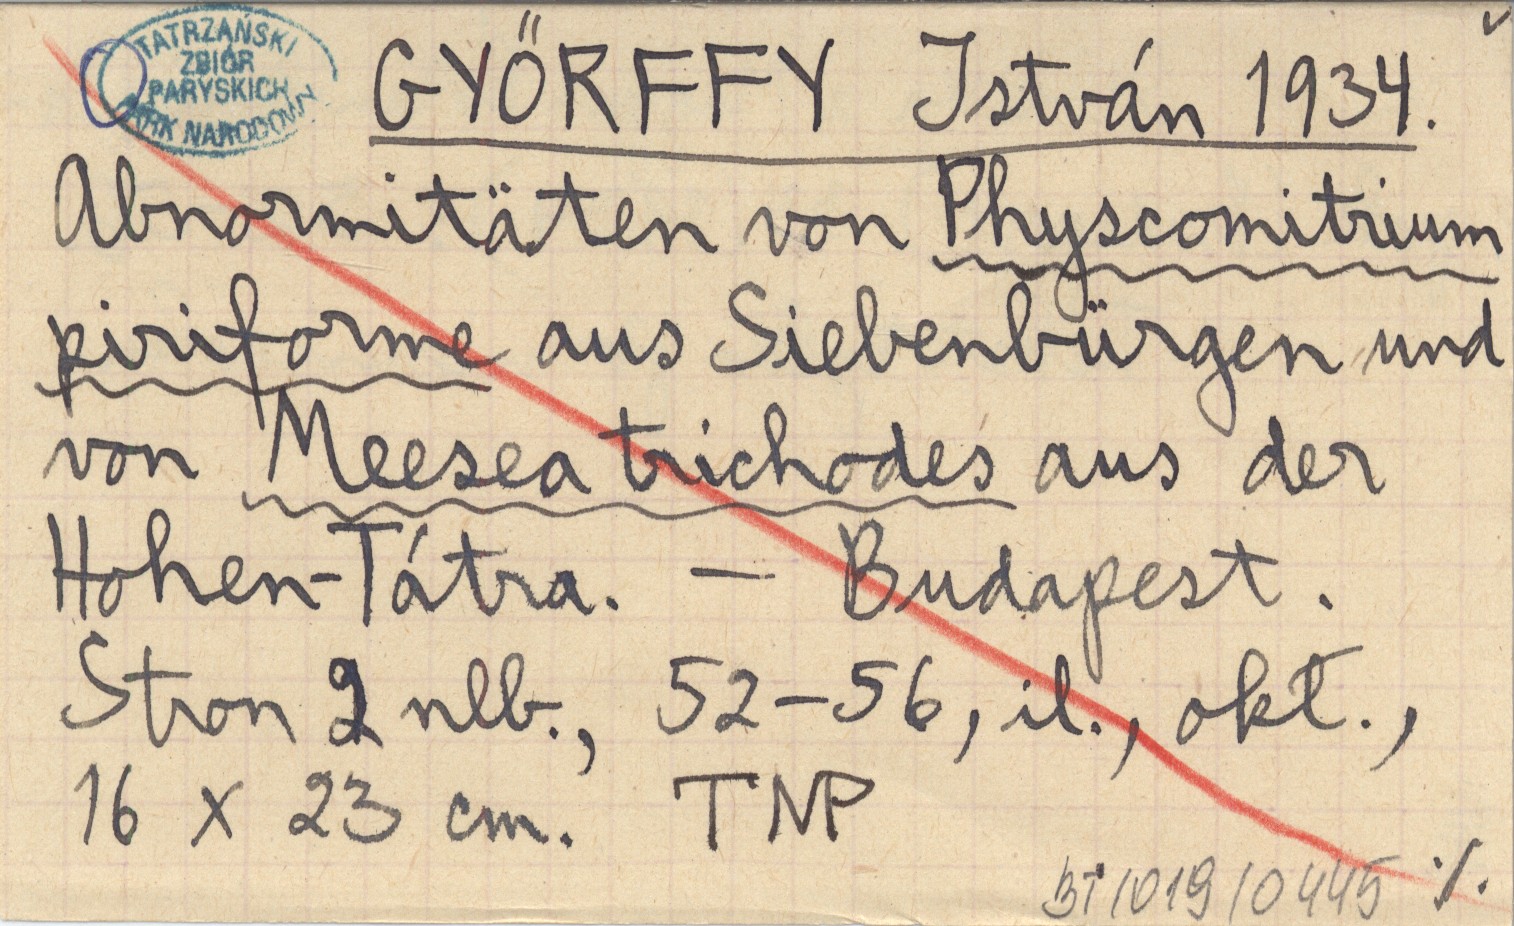 TATRZAŃSKI
ZBIÓR
PARYSKICH
PARK NARODOWY
GYŐRFFY István 1934.
Abnormitäten von Physcomitrium
piriforme aus Siebenbürgen und
von Meesea trichodes aus der
Hohen-Tátra. — Budapest.
Stron 2 nlb., 52-56, il., okł.,
16 x 23 cm. TNP
BT/019/0445 ·/.